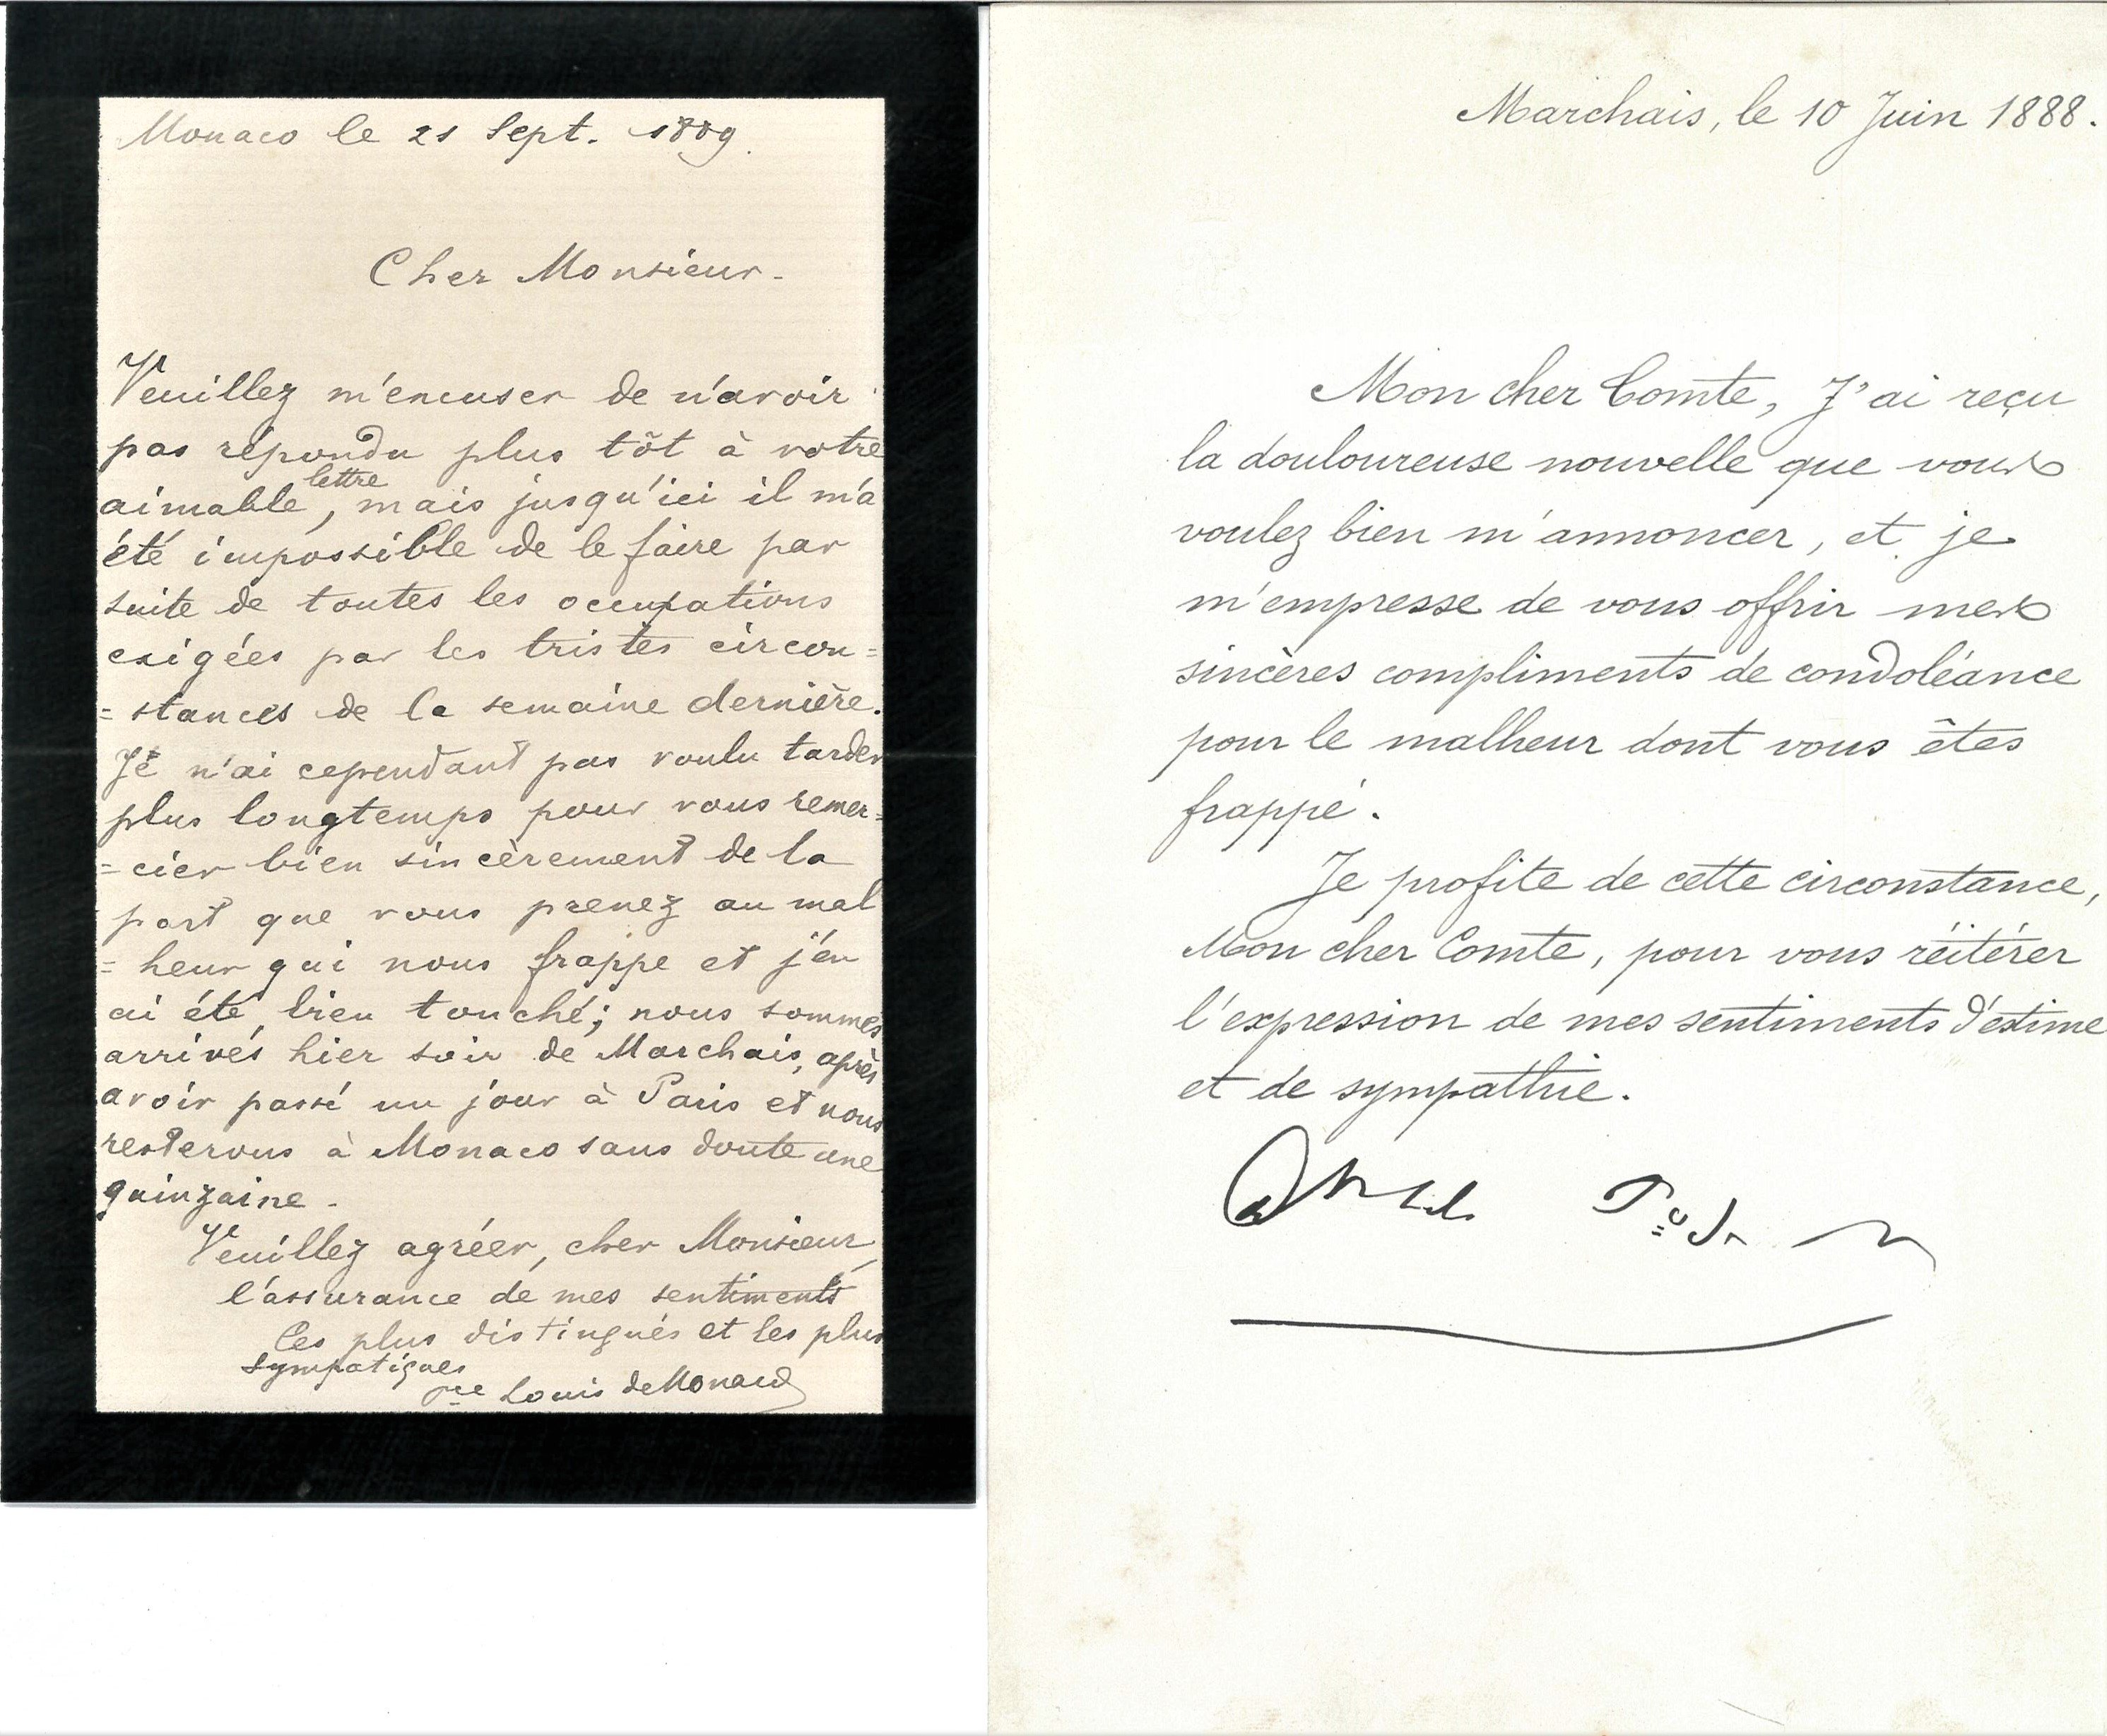 Monaco le 21 Sept. 1889.
Cher Monsieur.
Veuillez m'encuser de n'avoir
pas répondu plus tôt à votre
lettre
aimable, mais jusqu'ici il m'a
été impossible de le faire par
suite de toutes les occupations
exigées par les tristes circon=
=stances de la semaine dernière.
Je n'ai cependant pas voulu tarder
plus longtemps pour vous remer=
=cier bien sincèrement de la
part que vous prenez au mal
=heur qui nous frappe et j'en
ai été bien touché; nous sommes
arrivés hier soir de Marchais, après
avoir passé un jour à Paris et nous
resterons à Monaco sans doute une
quinzaine.
Veuillez agréer, cher Monsieur,
l'assurance de mes sentiments
les plus distingués et les plus
sympatiques
Pce Louis de Monaco
Marchais, le 10 Juin 1888.
Mon cher Comte, J'ai reçu
la douloureuse nouvelle que vous
voulez bien m'annoncer, et je
m'empresse de vous offrir mes
sincères compliments de condoléance
pour le malheur dont vous êtes
frappé.
Je profite de cette circonstance,
Mon cher Comte, pour vous réïtérer
l'expression de mes sentiments d'estime
et de sympathie.